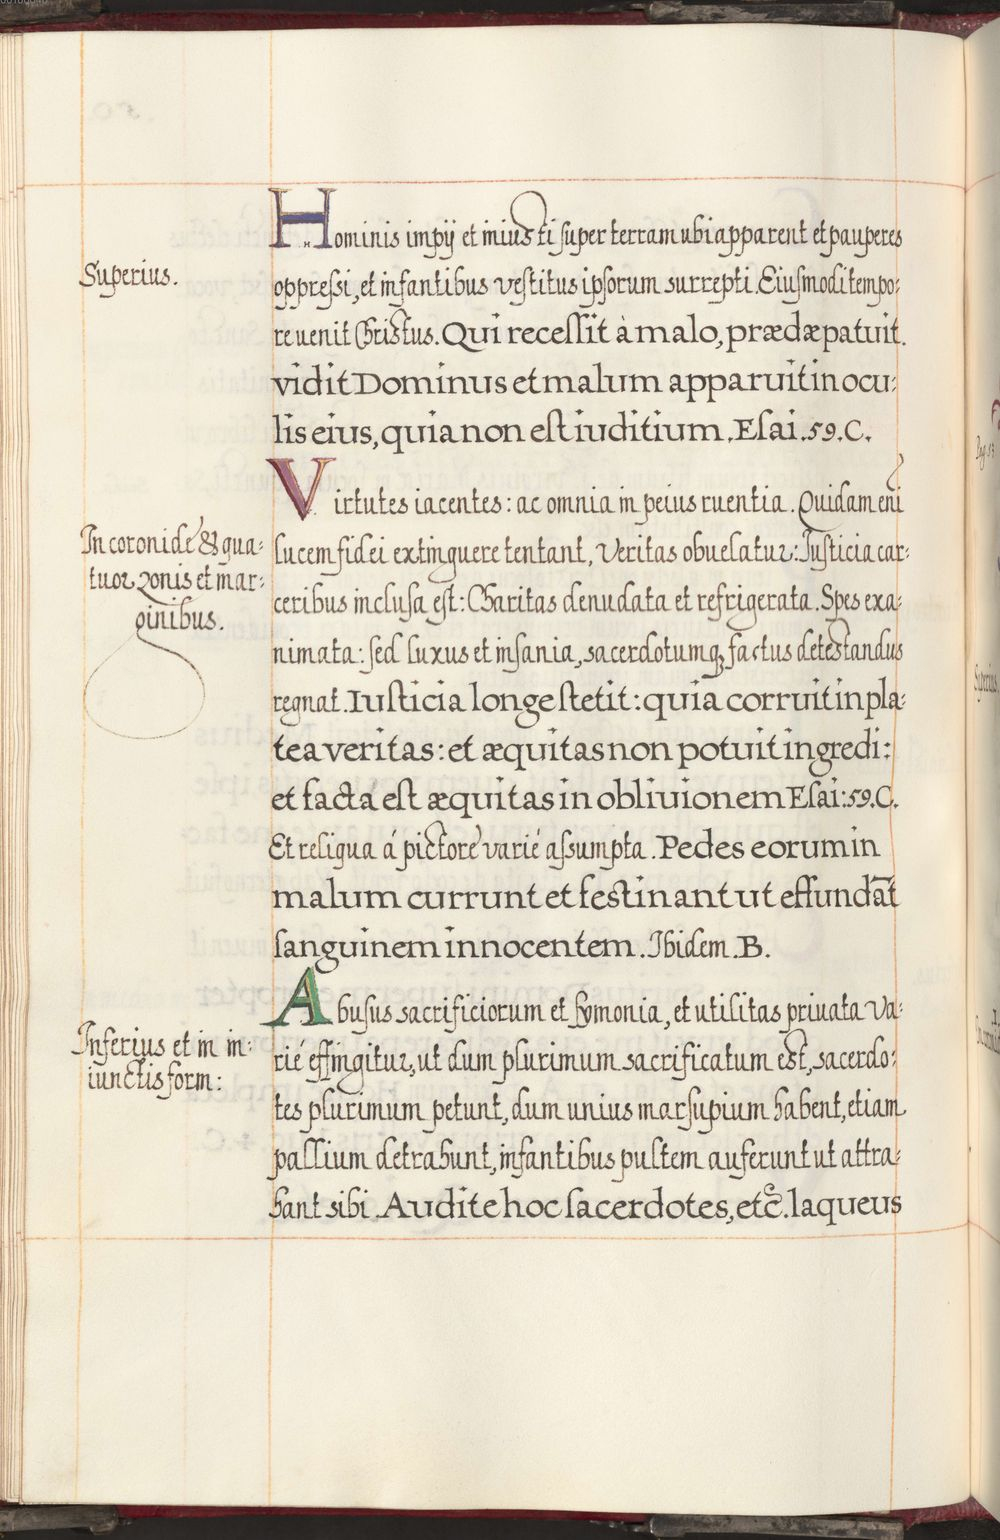 Superius.
Hominis impij et iniusti super terram ubi apparent et pauperes
oppressi, et infantibus vestitus ipsorum surrepti. Eiusmodi tempo:
re uenit Christus. Qui recessit à malo, prædæ patuit.
vidit Dominus et malum apparuit in ocu:
lis eius, quia non est iuditium. Esai. 59. C.
In coronide & qua:
tuor zonis et mar:
ginibus.
Virtutes iacentes: ac omnia in peius ruentia. Quidam eni
lucem fidei extinguere tentant, Veritas obuelatur: Iusticia car:
ceribus inclusa est: Charitas denudata et refrigerata. Spes exa:
nimata: sed luxus et insania, sacerdotumq, factus detestandus
regnat. Iusticia longe stetit: quia corruit in pla:
tea veritas: et æquitas non potuit ingredi:
et facta est æquitas in obliuionem Esai: 59. C.
Et reliqua á pictore varié assumpta. Pedes eorum in
malum currunt et festinant ut effundāt
sanguinem innocentem. Ibidem. B.
Inferius et in in:
iunctis form:
Abusus sacrificiorum et symonia, et utilitas priuata va:
rié effingitur, ut dum plurimum sacrificatum est, sacerdo:
tes plurimum petunt, dum unius marsupium habent, etiam
pallium detrahunt, infantibus pultem auferunt ut attra:
hant sibi. Audite hoc sacerdotes, etc̄. laqueus